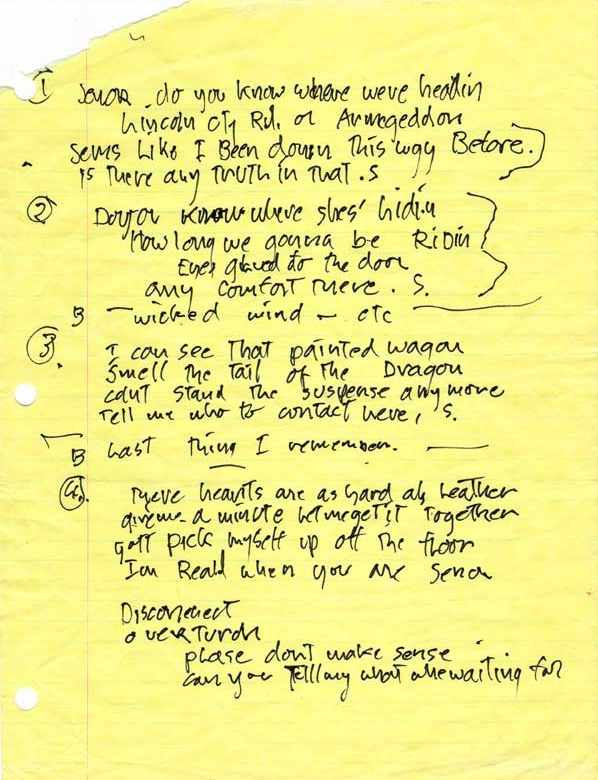 1 Senor. do you know where weve headin
Lincoln cty Rd. or Armegeddon
Sems Like I Been down This way Before.
is There any TRuTH in That. S
2 Doyou know where shes' hidin
How long we gonna be RiDin
Eyes glued to the door
any comfort There. S.
B — wicked wind ~ etc
3. I can see That painted wagon
Smell the Tail of the Dragon
cant stand the suspense any more
Tell me who to contact here, S.
B Last Thing I remember.
4. There hearts are as hard as Leather
giveme a minute letmegetit Together
gott pick myself up off the floor
Im Ready when you are Senor
Disconnect
overturn
please dont make sense
can you Tell my what are waiting for